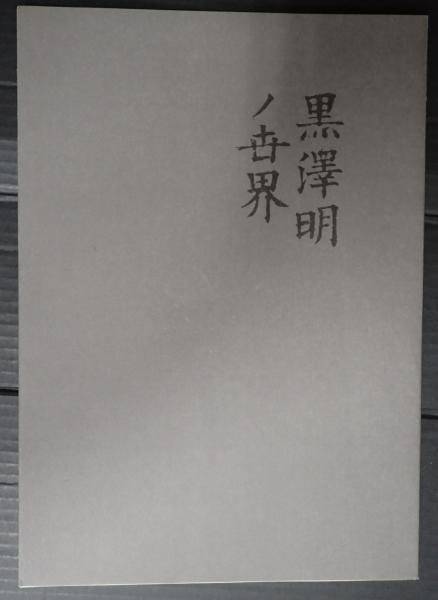 黒澤明
ノ世界